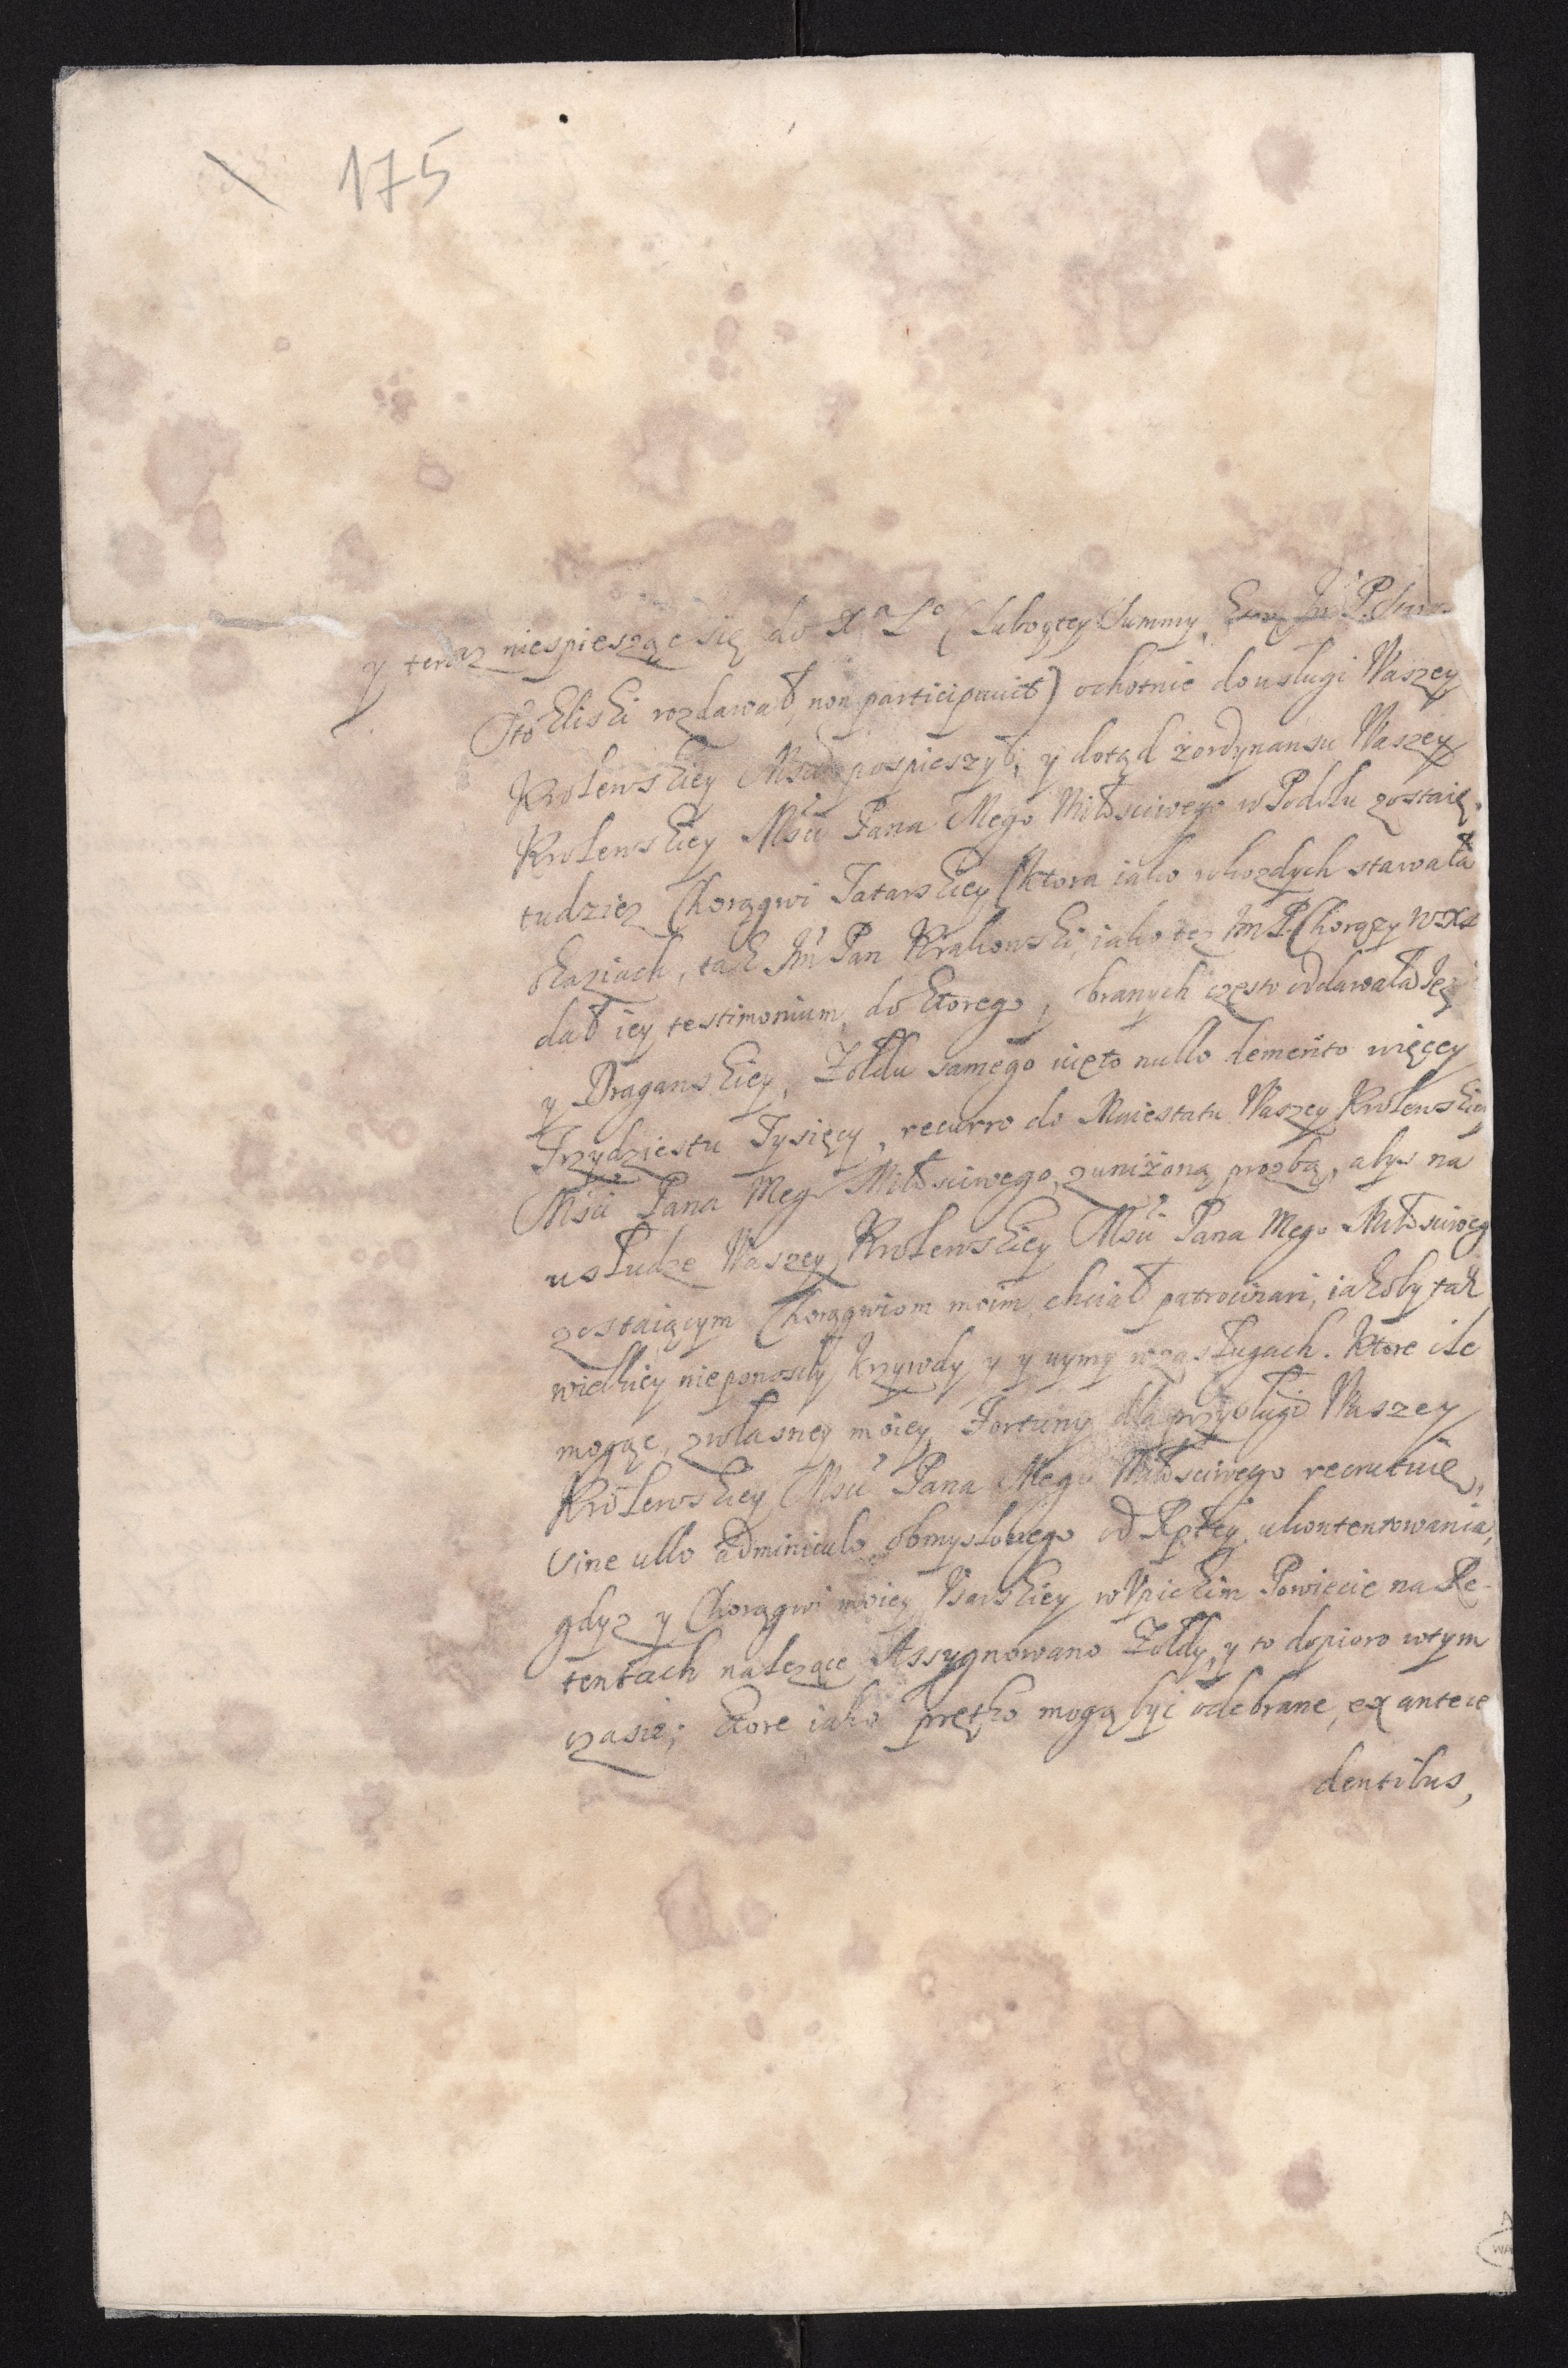 175
y teraz niespiesząc się do X a L o (Luboytey Summy, Jm P.
Stokliski rozdawał, non participauit) ochotnie do usługi Waszey
Krolewskiey Msci pospieszył; y dotąd zordynansu Waszey
Krolewskiey Msci Pana Mego Miłosciwego w Podolu zostaię.
tudziez Chorągwi Tatarskiey (Ktora iako w kozdych stawała
okaziach, tak Jm Pan Krakowski, iako tez Jm P. Chorązy WXL
dał iey testimonium, do ktorego, branych często oddawała Jęz
y Draganskiey, Zołdu samego uięto nullo demerito więcey
Trzydziestu Tysięcy, recurro do Maiestatu Waszey Krolewskiey
Msci Pana Meg Miłosciwego, z uniżoną prozbą, abys na
usłudze Waszey Krolewskiey Msci Pana Mego Miłosciweg
zostaiącym Chorągwiom moim chciał patrocinari, iakoby tak
wielkiey nieponosiły krzywdy y y uymy w zasługach. Ktore ile
mogąc, z własney moiey Fortuny dla przysługi Waszey
Krolewskiey Msci Pana Mego Miłosciwego recrutuię,
Sine ullo adminiculo obmyslonego od Rptey ukontentowania,
gdyz y Chorągwi moiey Usarskiey w Upickim Powiecie na Re-
tentach nalezące Assygnowano Zołdy, y to dopioro w tym
czasie; ktore iako prętko mogą byc odebrane, ex antece
dentibus,